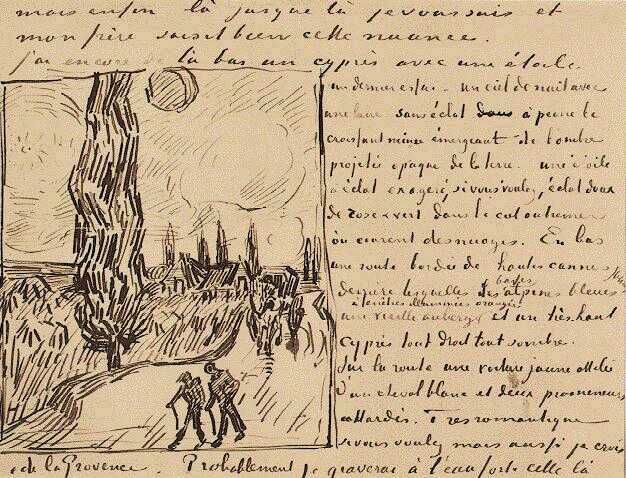 mais enfin là jusque là je vous suis et
mon frère saisit bien cette nuance.
J'ai encore de là bas un cyprès avec une étoile
un dernier essai – un ciel de nuit avec
une lune sans éclat à peine le
croissant mince émergeant de l'ombre
projetée opaque de la terre – une étoile
à éclat exagéré, si vous voulez, éclat doux
de rose et vert dans le ciel outremer
où courent des nuages. En bas
une route bordée de hautes cannes
derrière lesquelles les basses alpines bleues
à fenêtres illuminées orangé
une vieille auberge et un très haut
cyprès tout droit tout sombre.
Sur la route une voiture jaune attelée
d'un cheval blanc et deux promeneurs
attardés. Très romantique
si vous voulez mais aussi je crois
de la Provence. Probablement je graverai à l'eau forte celle là